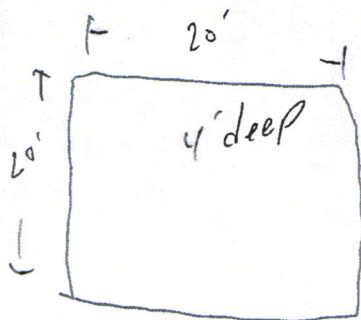 20'
20'
4' deep